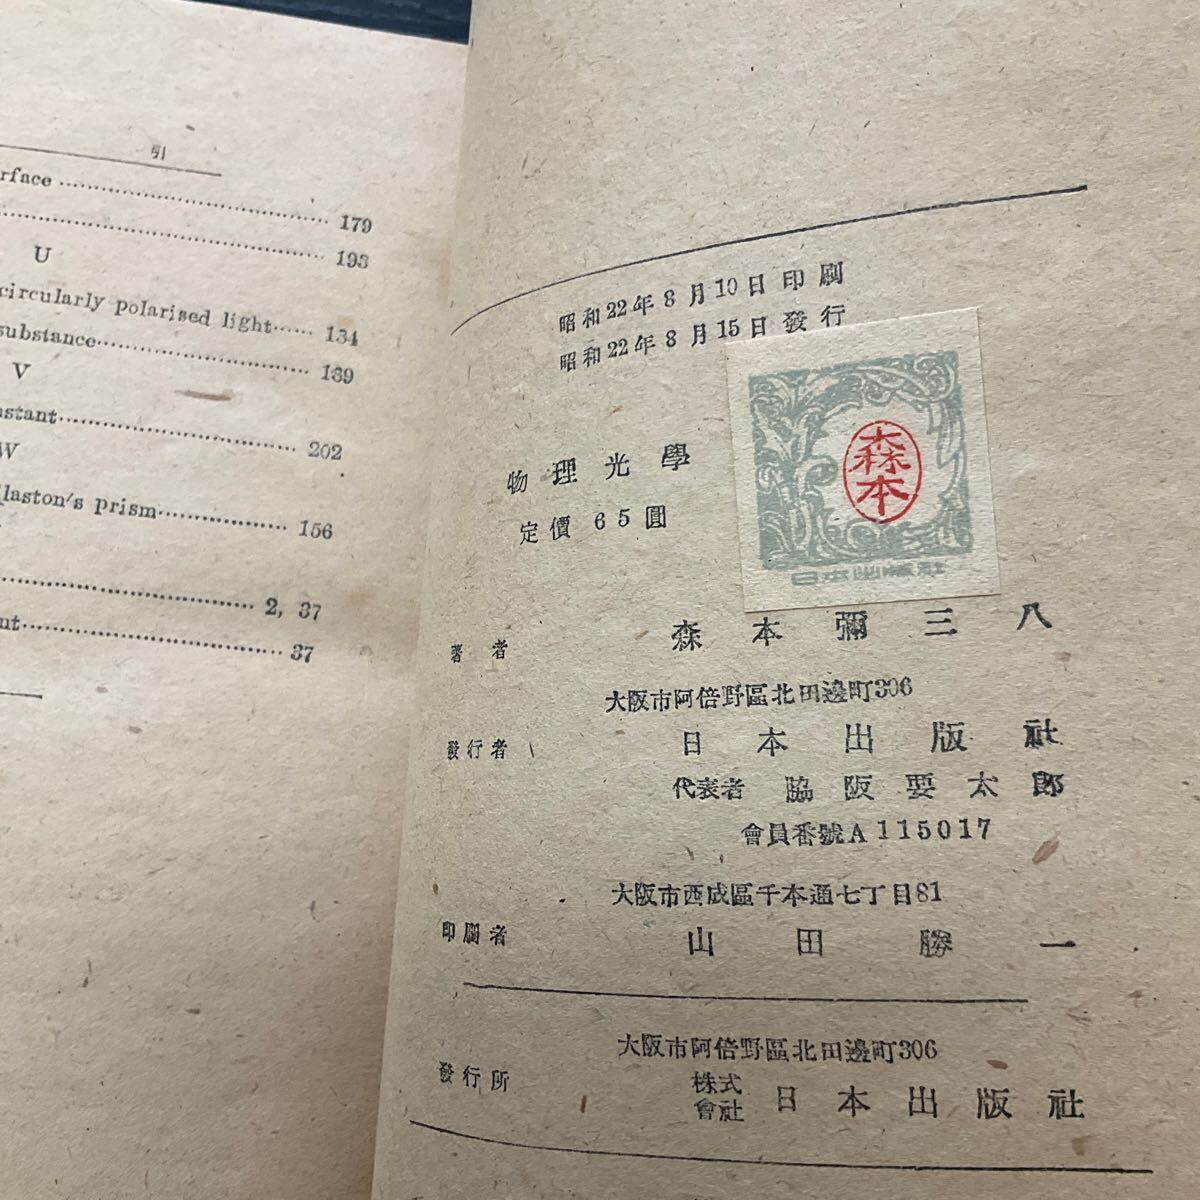 引
rface 179
193
U
circularly polarised light 134
substance 139
V
nstant 202
W
laston's prism 156
2, 37
nt 37
昭和22年8月10日印刷
昭和22年8月15日發行
物理光學
定價 65圓
森本
日本出版社
著者 森本彌三八
大阪市阿倍野區北田邊町306
發行者 日本出版社
代表者 脇阪要太郎
會員番號A115017
大阪市西成區千本通七丁目81
印刷者 山田勝一
大阪市阿倍野區北田邊町306
發行所 株式會社 日本出版社